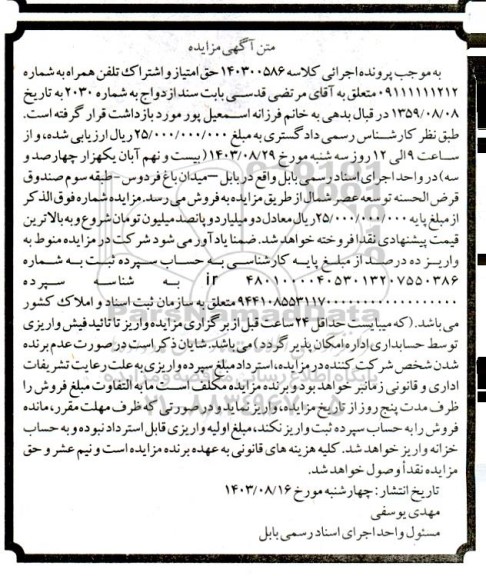 متن آگهی مزایده
به موجب پرونده اجرائی کلاسه ۱۴۰۳۰۰۵۸۶ حق امتیاز و اشتراک تلفن همراه به شماره
۰۹۱۱۱۱۱۱۲۱۲ متعلق به آقای مرتضی قدسی بابت سند ازدواج به شماره ۲۰۳۰ به تاریخ
۱۳۵۹/۰۸/۰۸ در قبال بدهی به خانم فرزانه اسمعیل پور مورد بازداشت قرار گرفته است.
طبق نظر کارشناس رسمی دادگستری به مبلغ ۲۵/۰۰۰/۰۰۰/۰۰۰ ریال ارزیابی شده، و از
ساعت ۹ الی ۱۲ روز سه شنبه مورخ ۱۴۰۳/۰۸/۲۹ (بیست و نهم آبان یکهزار چهارصد و
سه) در واحد اجرای اسناد رسمی بابل واقع در بابل – میدان باغ فردوس – طبقه سوم صندوق
قرض الحسنه توسعه عصر شمال از طریق مزایده به فروش می رسد. مزایده شماره فوق الذکر
از مبلغ پایه ۲۵/۰۰۰/۰۰۰/۰۰۰ ریال معادل دو میلیارد و پانصد میلیون تومان شروع و به بالاترین
قیمت پیشنهادی نقدا فروخته خواهد شد. ضمنا یادآور می شود شرکت در مزایده منوط به
واریز ده درصد از مبلغ پایه کارشناسی به حساب سپرده ثبت به شماره
ir ۴۸۰۱۰۰۰۰۴۰۵۳۰۱۳۲۰۷۵۵۰۳۸۶ به شناسه سپرده
۹۴۴۱۰۸۵۵۳۱۱۷۰۰۰۰۰۰۰۰۰۰۰۰۰۰۰۰۰۰ متعلق به سازمان ثبت اسناد و املاک کشور
می باشد. (که میبایست حداقل ۲۴ ساعت قبل از برگزاری مزایده واریز تا تائید فیش واریزی
توسط حسابداری اداره امکان پذیر گردد) می باشد. شایان ذکر است در صورت عدم برنده
شدن شخص شرکت کننده در مزایده، استرداد مبلغ سپرده واریزی به علت رعایت تشریفات
اداری و قانونی زمانبر خواهد بود و برنده مزایده مکلف است ما به التفاوت مبلغ فروش را
ظرف مدت پنج روز از تاریخ مزایده، واریز نماید و در صورتی که ظرف مهلت مقرر، مانده
فروش را به حساب سپرده ثبت واریز نکند، مبلغ اولیه واریزی قابل استرداد نبوده و به حساب
خزانه واریز خواهد شد. کلیه هزینه های قانونی به عهده برنده مزایده است و نیم عشر و حق
مزایده نقداً وصول خواهد شد.
تاریخ انتشار: چهارشنبه مورخ ۱۴۰۳/۰۸/۱۶
مهدی یوسفی
مسئول واحد اجرای اسناد رسمی بابل